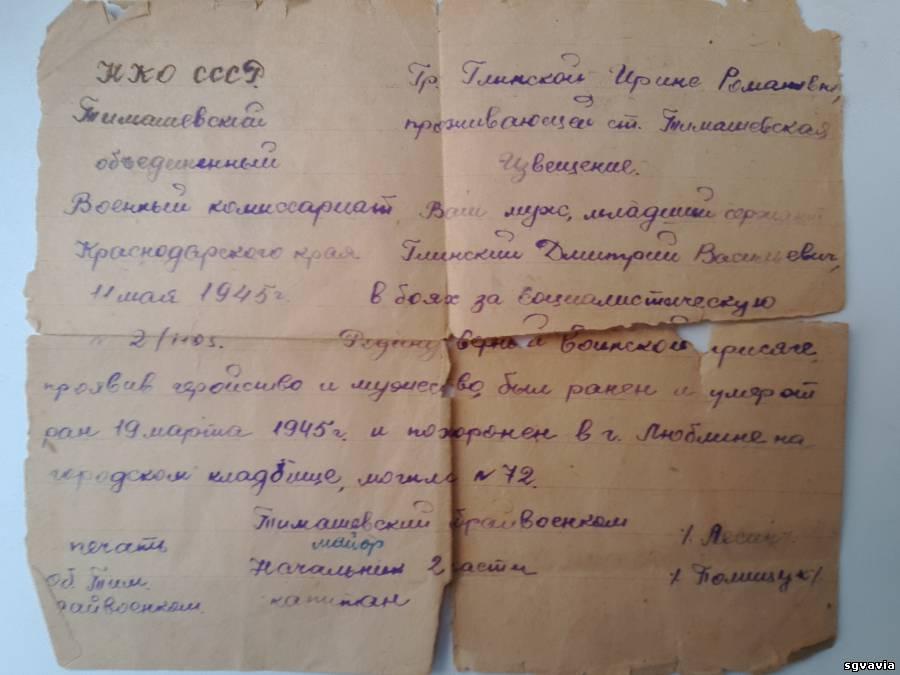 НКО СССР. Гр. Глинской Ирине Романовн,
Тимашевский проживающей ст. Тимашевская
объединенный Извещение.
Военный комиссариат Ваш муж, младший сержант
Краснодарского края Глинский Дмитрий Васильевич,
11 мая 1945 г. в боях за социалистическую
№ 2/1105. Родину верный воинской присяге,
проявив геройство и мужество, был ранен и умер от
ран 19 марта 1945 г. и похоронен в г. Люблине на
городском кладбище, могила № 72.
Тимашевский райвоенком
печать майор /Лесин
Начальник 2 части /Полищук/
об. Тим.
райвоенком. капитан
sgvavia